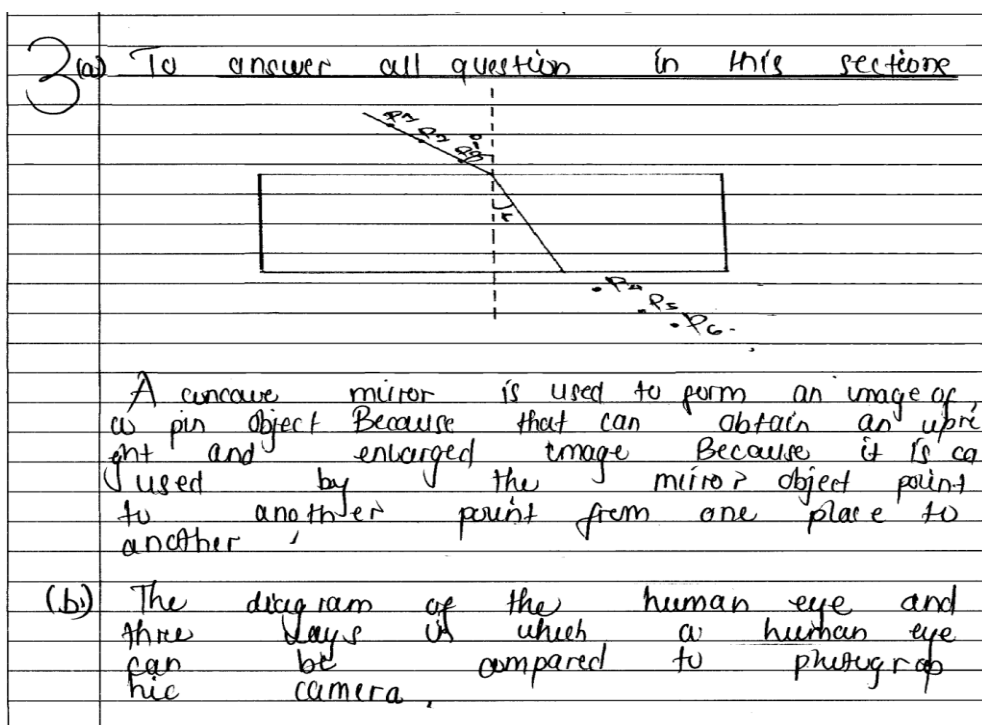 3(a) To answer all question in this sectione
r
P4
P5
P6
A concave mirror is used to form an image of,
a pin object Because that can obtain an upri
ght and enlarged image Because it is ca
used by the mirror object point
to another point from one place to
another,
(b) The diagram of the human eye and
three ways is which a human eye
can be compared to photograp
hic camera,